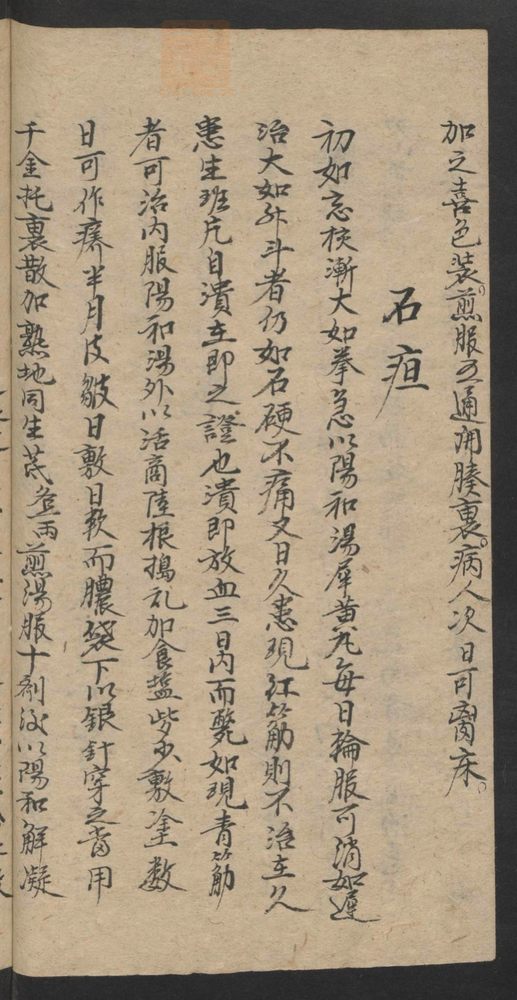 加之喜色装。煎服又通開腠裏。病人次日可离床。
石疽
初如惡核漸大如拳急以陽和湯犀黄丸每日輪服可消如遲
治大如升斗者仍如石硬不痛又日久患現紅筋則不治再久
患生班片自潰在即之證也潰即放血三日内而斃如現青筋
者可治内服陽和湯外以活商陸根搗乱加食盐些少敷塗数
日可作癢半月皮皺日敷日軟而膿袋下以銀針穿之當用
千金托裏散加熟地同生芪壹两煎湯服十剤後以陽和解凝